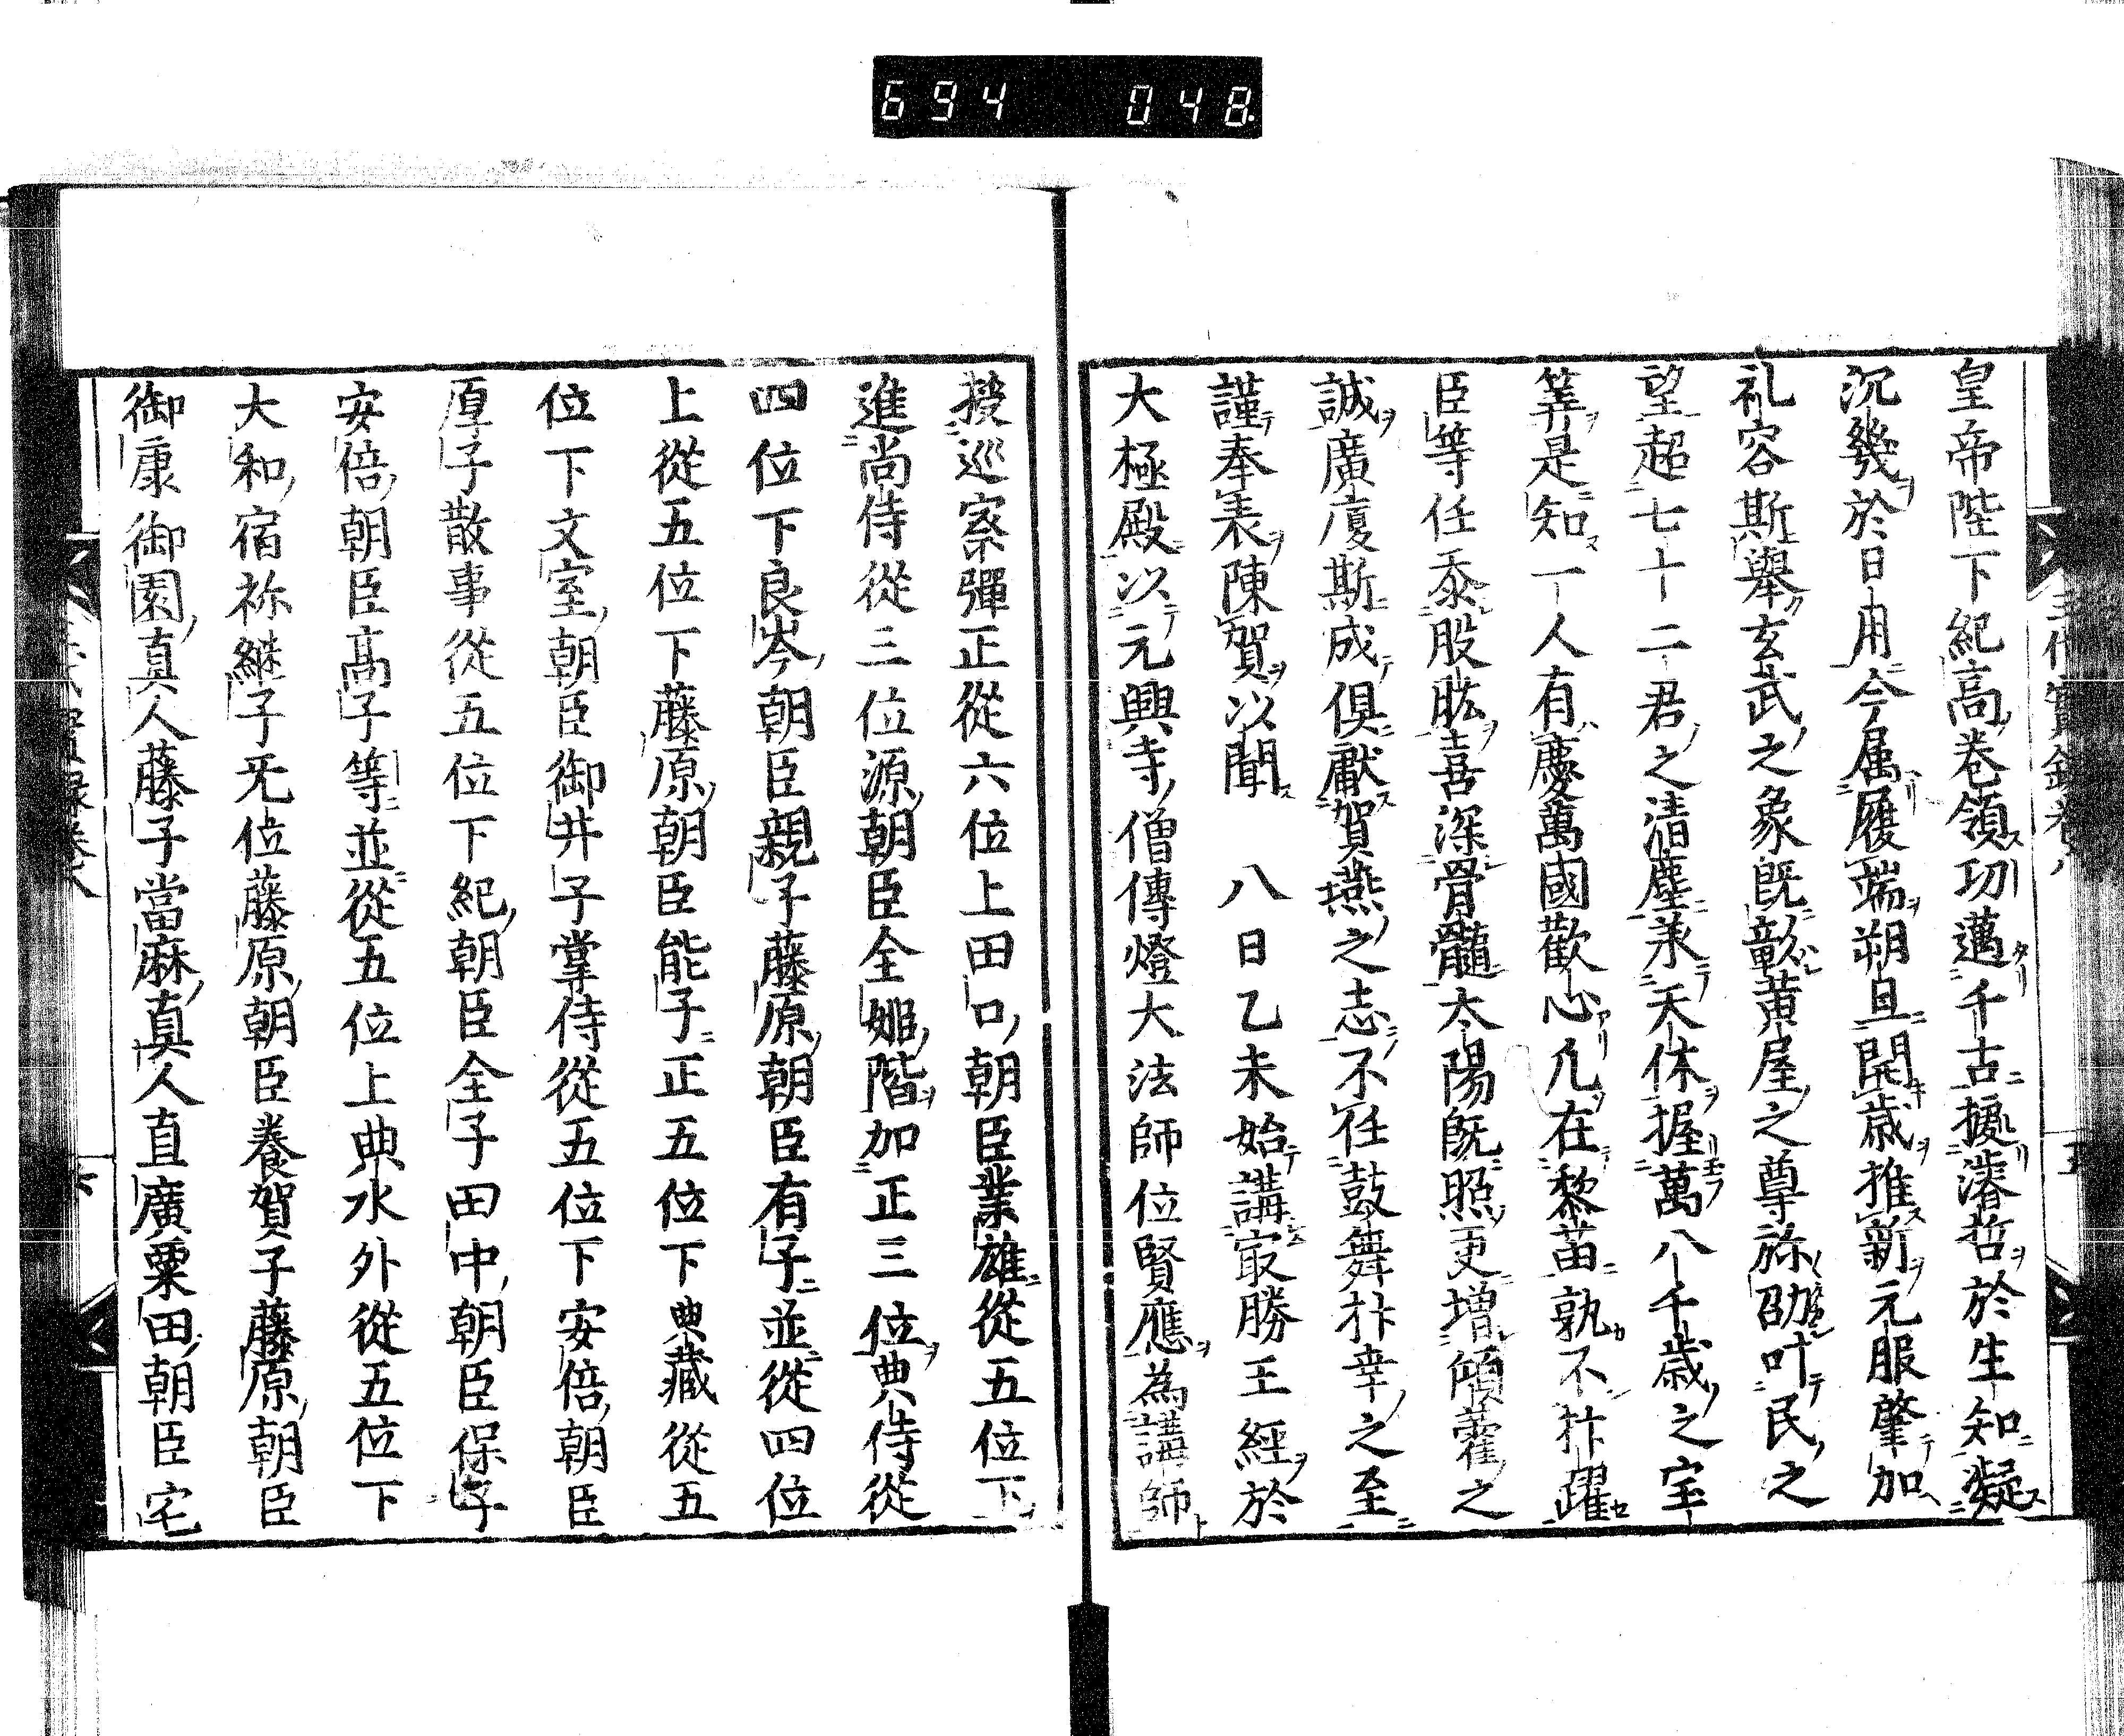 694 048
皇帝陛下紀高巻領功邁千古擾濬哲於生知凝
沉幾於日用今属履端朔旦開歳推新元服肇加
礼容斯舉玄武之象既彰黄屋之尊祢劭叶民之
望超七十二君之清塵兼天休握萬八千歳之宝
筭是知一人有慶萬國歡心凡在黎苗孰不抃躍
臣等任忝股肱喜深骨髓太陽既照更増傾藿之
誠廣廈斯成倶獻賀燕之志不任鼓舞抃幸之至
謹奉表陳賀以聞　八日乙未始講㝡勝王經於
大極殿以元興寺僧傳燈大法師位賢應為講師
授巡察彈正從六位上田口朝臣業雄從五位下
進尚侍從三位源朝臣全姫階加正三位典侍從
四位下良岑朝臣親子藤原朝臣有子並從四位
上從五位下藤原朝臣能子正五位下典藏從五
位下文室朝臣御井子掌侍從五位下安倍朝臣
厚子散事從五位下紀朝臣全子田中朝臣保子
安倍朝臣高子等並從五位上典水外從五位下
大和宿祢継子无位藤原朝臣養賀子藤原朝臣
御康御園真人藤子當麻真人直廣粟田朝臣宅